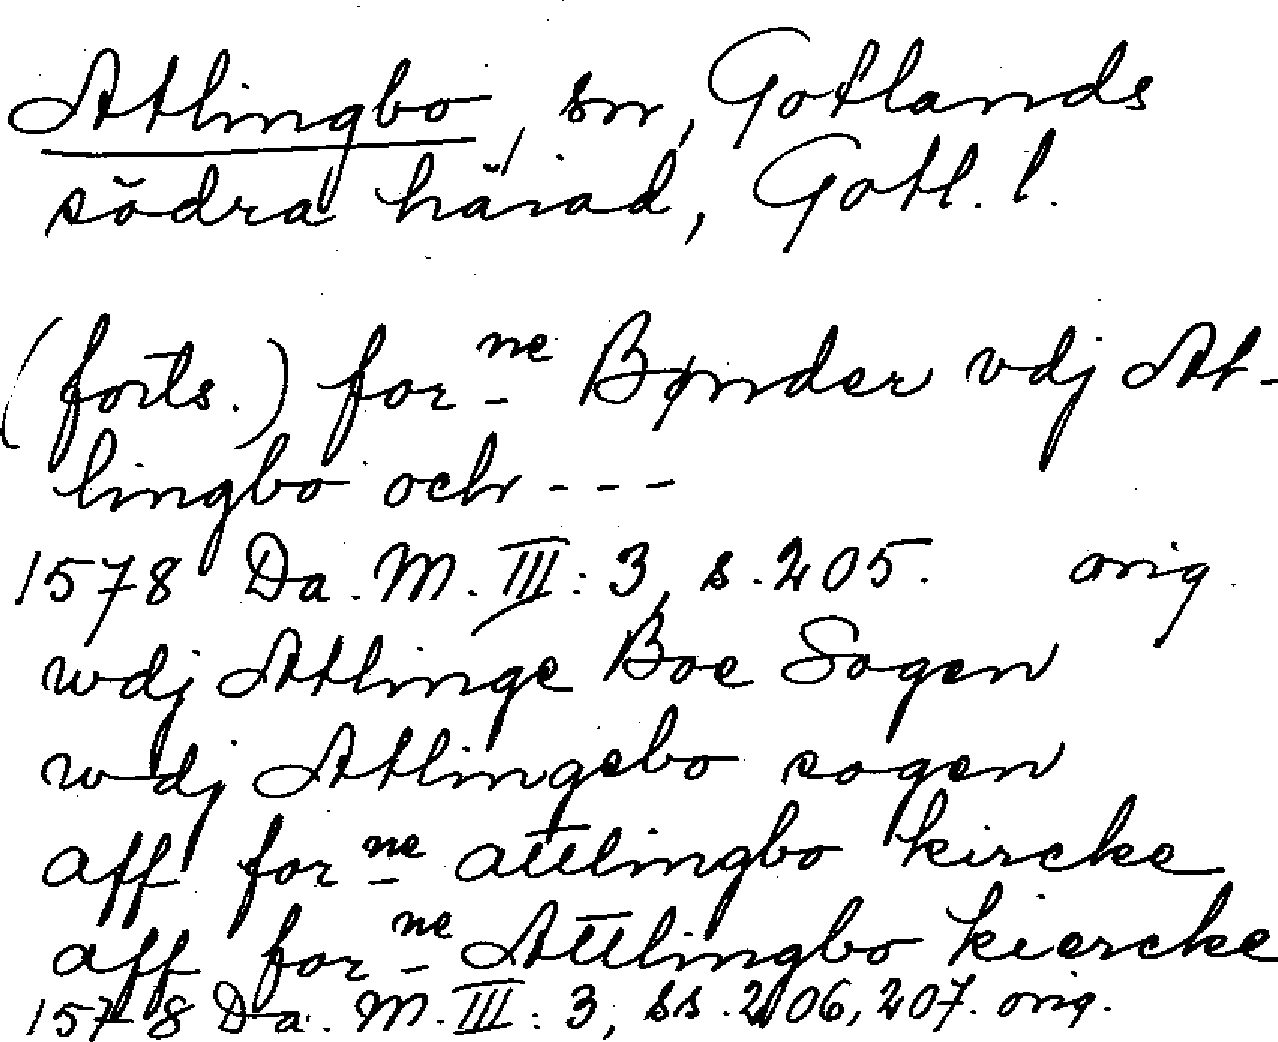 Atlingbo, sn, Gotlands
södra härad, Gotl. l.
(forts.) for ne Bønder vdj At-
lingbo och - - -
1578 Da. M. III: 3, s. 205. orig.
wdj Atlinge Boe Sogen
wdj Atlingebo sogen
aff for ne attlingbo kircke
aff for ne Attlingbo kiercke
1578 Da. M. III: 3, ss. 206, 207. orig.